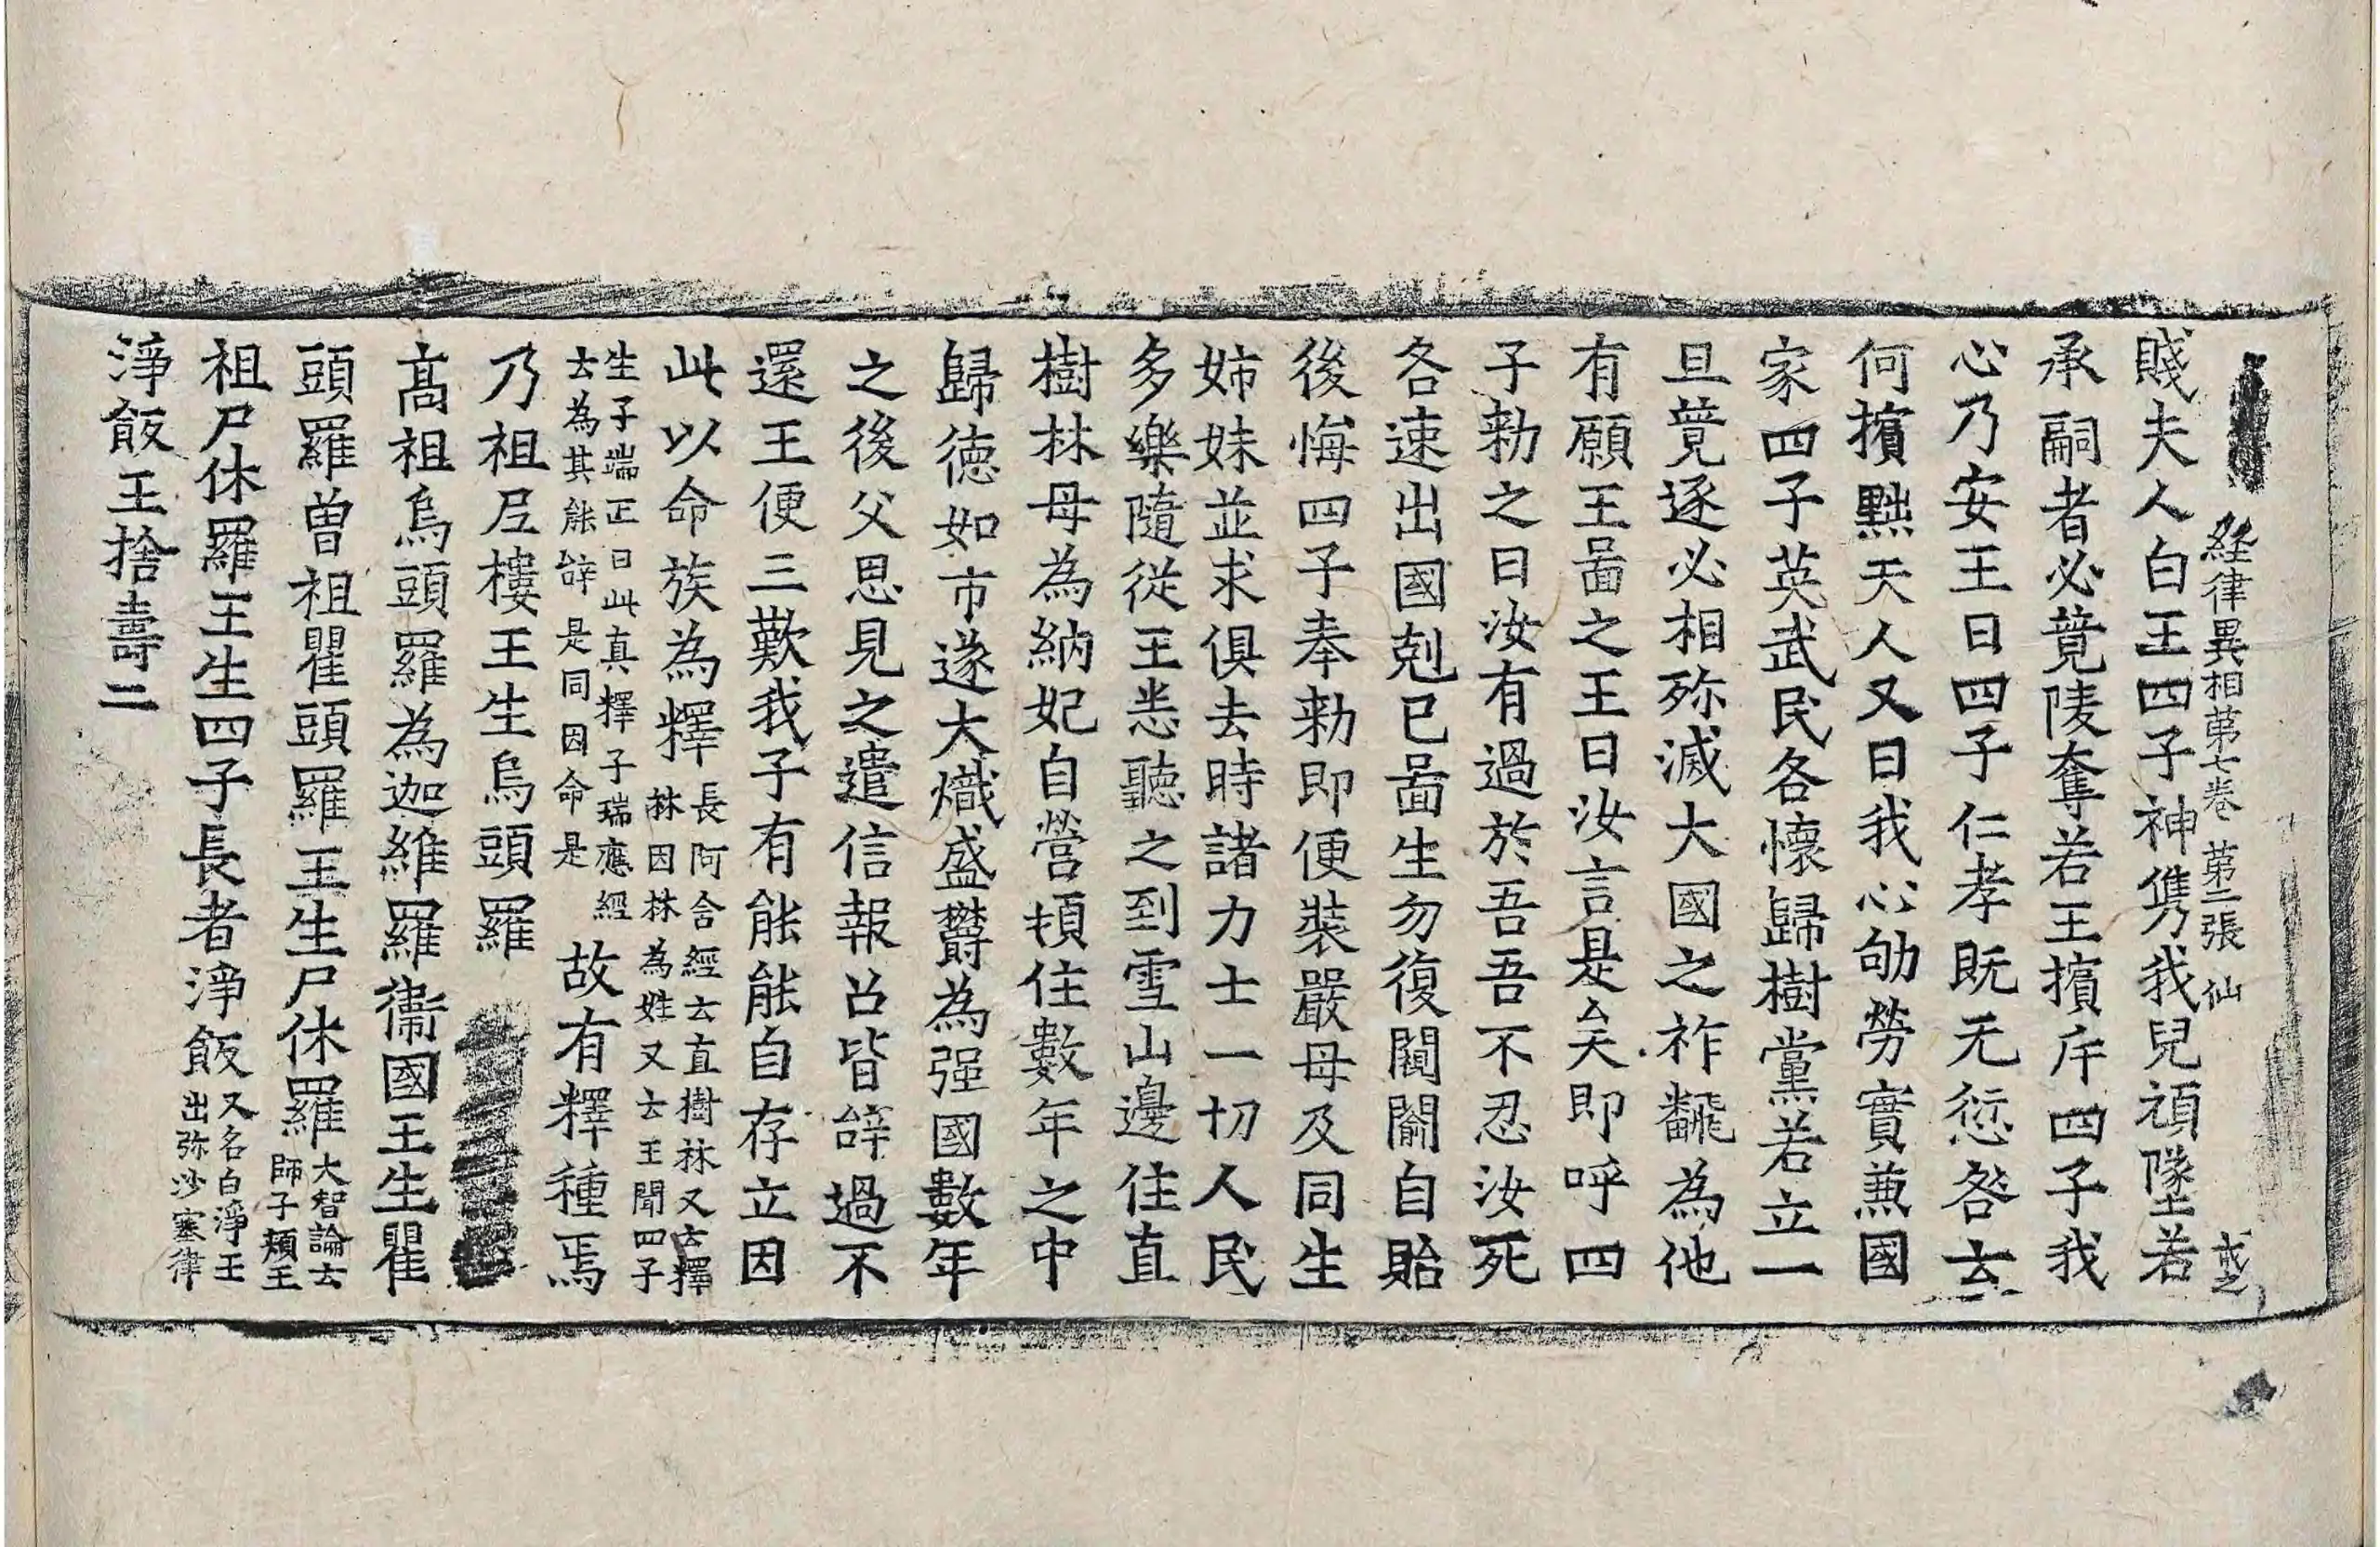 経律異相第七卷 第二張 仙
賤夫人白王四子神儁我兒頑墜若
承嗣者必竟陵奪若王擯斥四子我
心乃安王曰四子仁孝旣无愆咎云
何擯黜夫人又曰我心劬勞實兼國
家四子英武民各懷歸樹黨若立一
旦競逐必相殄滅大國之祚翻為他
有願王啚之王曰汝言是矣即呼四
子勑之曰汝有過於吾吾不忍汝死
各速出國剋已啚生勿復闚𨵦自貽
後悔四子奉勑即便裝嚴母及同生
姊妹並求俱去時諸力士一切人民
多樂隨從王悉聽之到雪山邊住直
樹林母為納妃自營頓住數年之中
歸德如市遂大熾盛欝為强國數年
之後父思見之遣信報召皆辝過不
還王便三歎我子有能能自存立因
此以命族為釋 長阿含經云直樹林又云釋
林因林為姓又云王聞四子
生子端正曰此真釋子瑞應經
云為其能辝是同因命是 故有釋種焉
乃祖𡰱樓王生烏頭羅
髙祖烏頭羅為迦維羅衞國王生瞿
頭羅曾祖瞿頭羅王生尸休羅 大智論云
師子頰王
祖尸休羅王生四子長者淨飯 又名白淨王
出弥沙塞律
淨飯王捨壽二